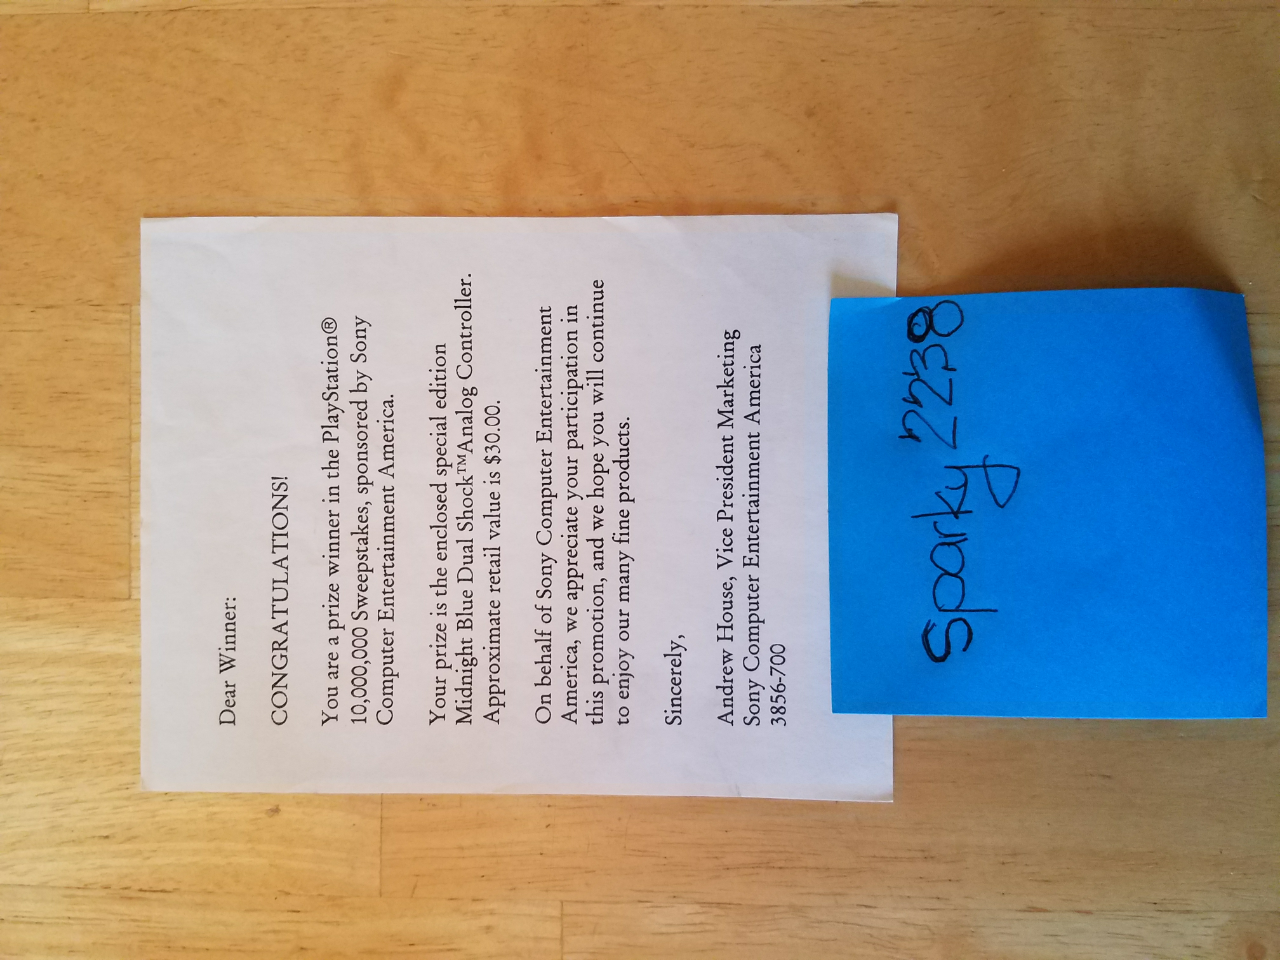 Dear Winner:
CONGRATULATIONS!
You are a prize winner in the PlayStation®
10,000,000 Sweepstakes, sponsored by Sony
Computer Entertainment America.
Your prize is the enclosed special edition
Midnight Blue Dual Shock™Analog Controller.
Approximate retail value is $30.00.
On behalf of Sony Computer Entertainment
America, we appreciate your participation in
this promotion, and we hope you will continue
to enjoy our many fine products.
Sincerely,
Andrew House, Vice President Marketing
Sony Computer Entertainment America
3856-700
Sparky2238